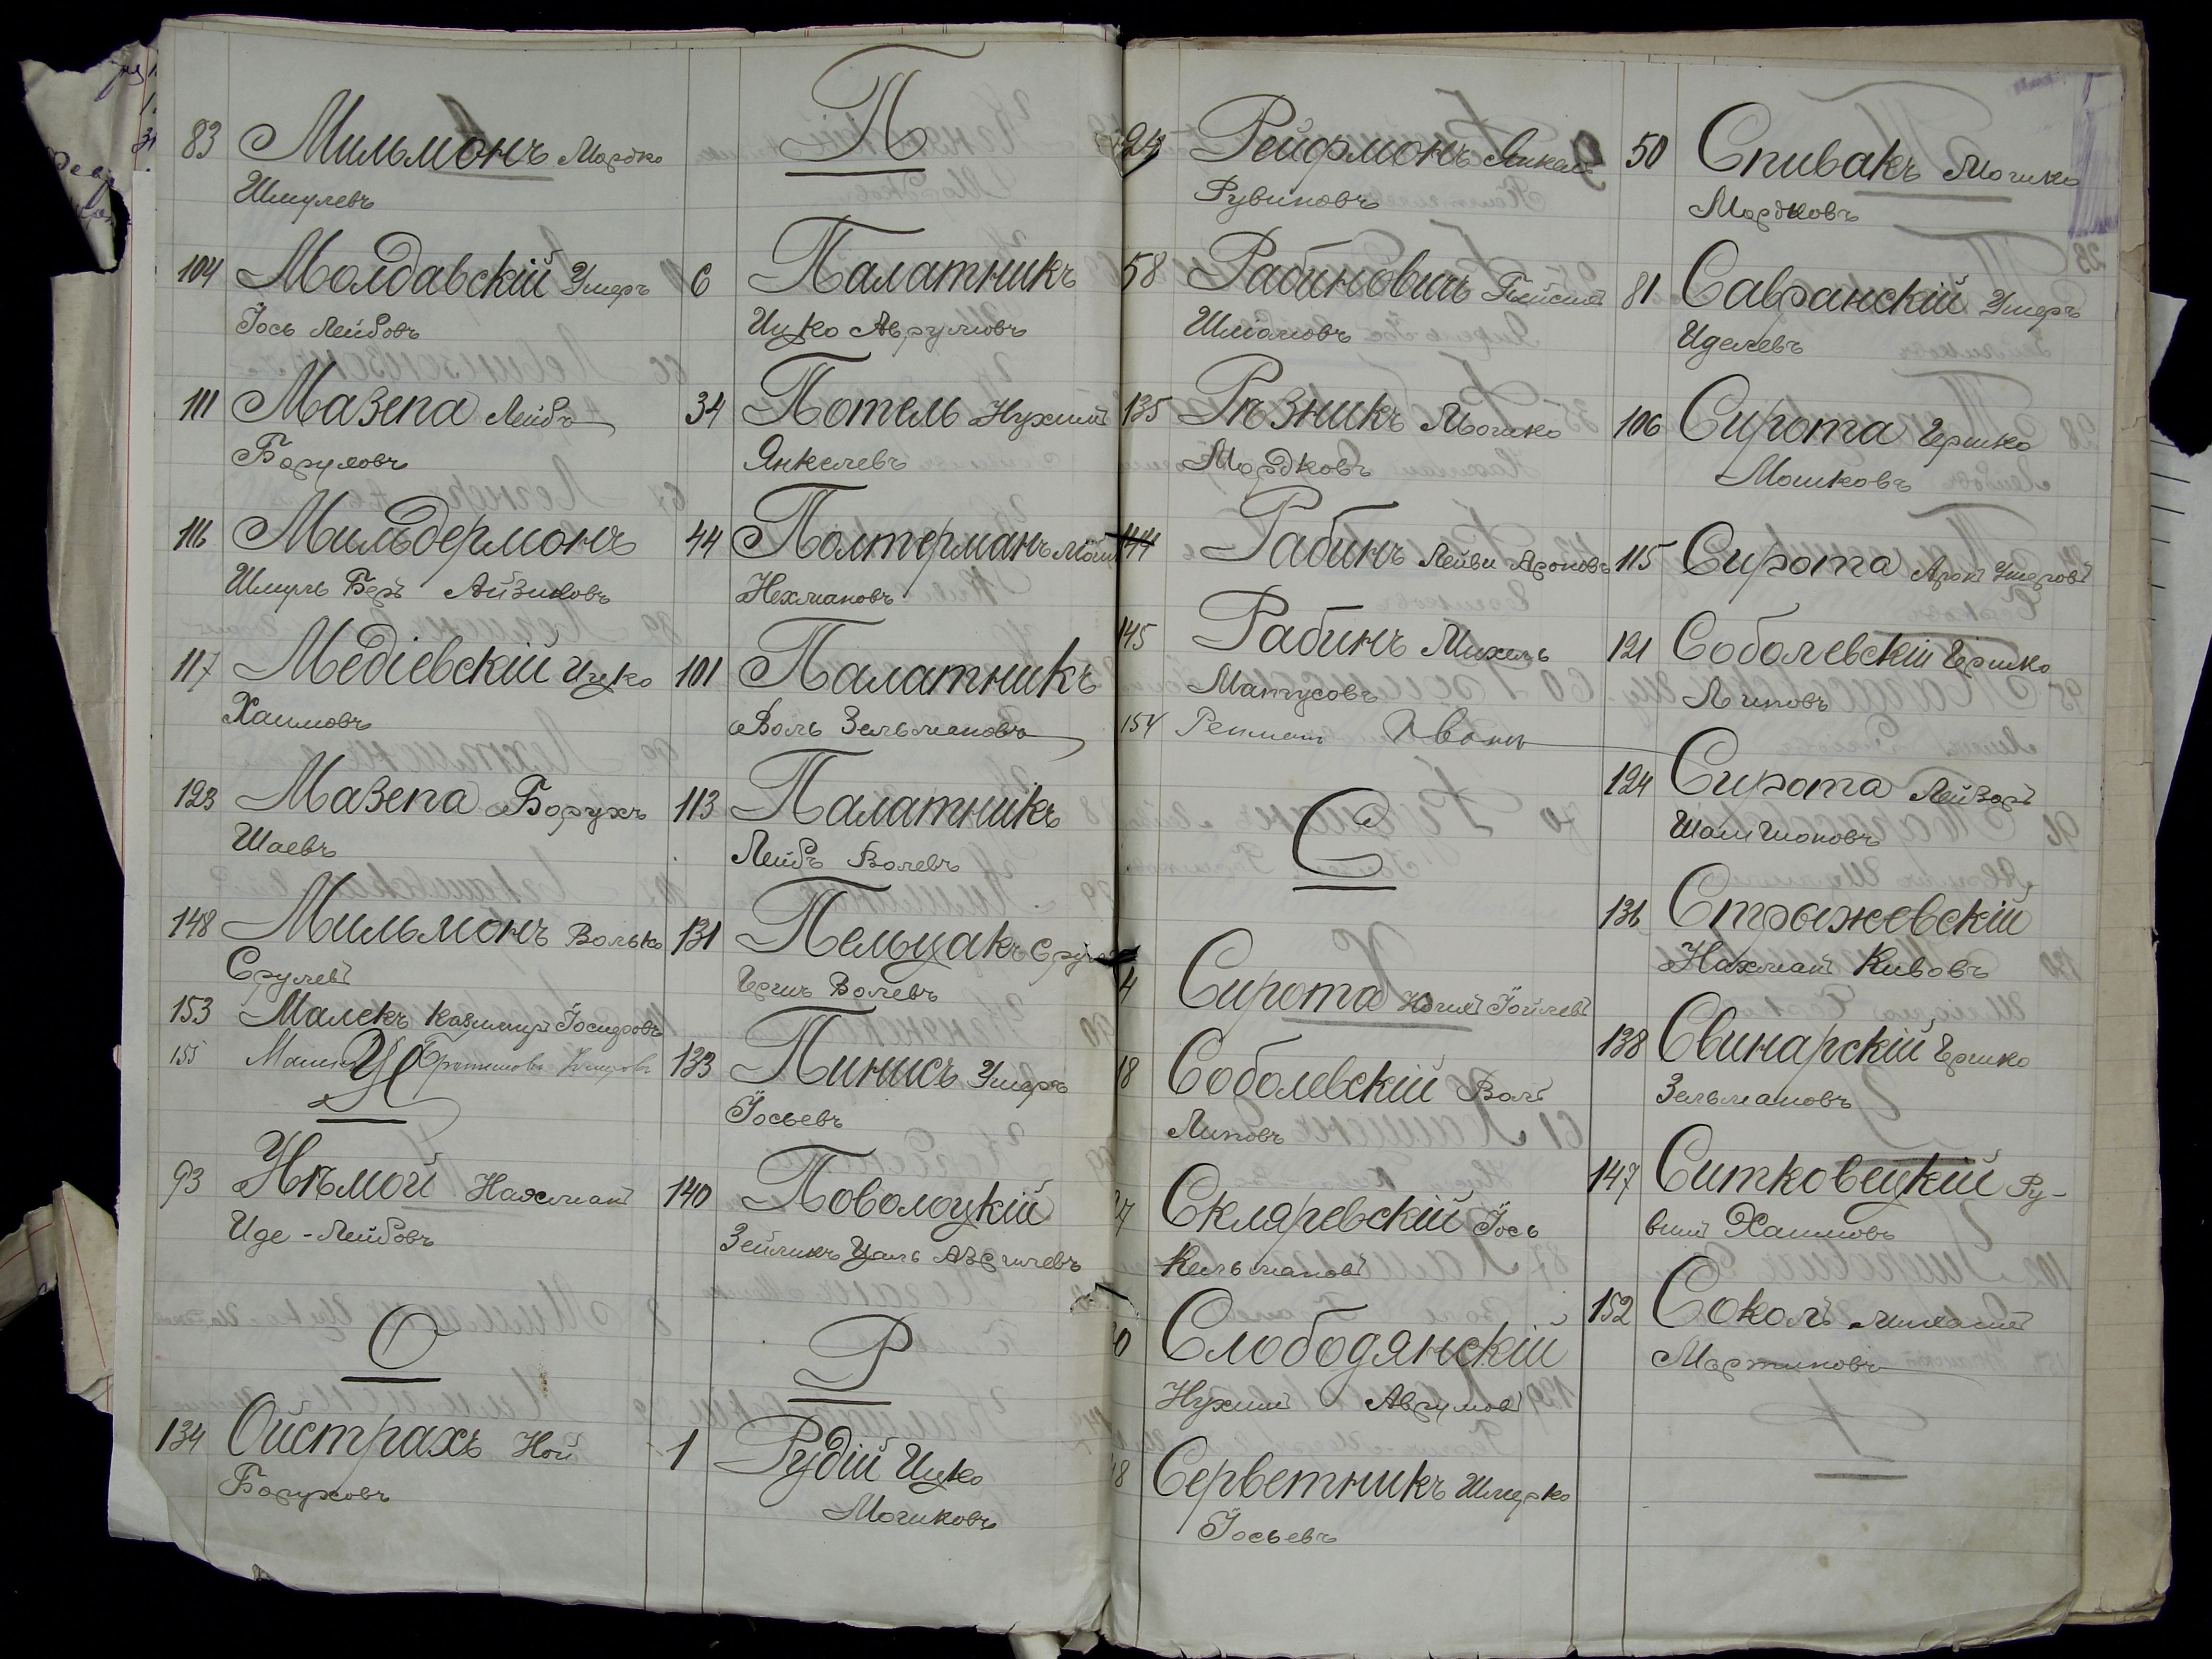 83 Мильмонъ Мордко
Шмулевъ
104 Молдавскій Умеръ
Іось Лейбовъ
111 Мазепа Лейбъ
Боруховъ
116 Мильдермонъ
Шмуль Беръ Айзиковъ
117 Медіевскій Ицко
Хаимовъ
123 Мазепа Борухъ
Шаевъ
148 Мильмонъ Волько
Срулевъ
153 Малекъ Казимиръ Іосифовъ
155
Н
93 Нѣмой Нахманъ
Иде-Лейбовъ
О
134 Ойстрахъ Ной
Боруховъ
П
6 Палатникъ
Ицко Аврумовъ
34 Потель Нухимъ
Янкелевъ
44 Полтерманъ
Нехмановъ
101 Палатникъ
Воль Зельмановъ
113 Палатникъ
Лейбъ Волевъ
131 Пельцакъ
Гершъ Волевъ
133 Пинисъ Умеръ
Іосьевъ
140 Поволоцкій
Зейликъ Цаль
Р
1 Рудій Ицко
Мошковъ
Рейфмонъ Янкель
Рувиновъ
58 Рабиновичъ
Шмомовъ
135 Рѣзникъ Мошко
Мордковъ
144 Рабинъ Лейви Ароновъ
145 Рабинъ Михель
Матусовъ
154
С
4 Сирота Іойлевъ
18 Соболевскій Воль
Липовъ
27 Скляревскій Іось
Кельмановъ
Слободянскій
Нухимъ Аврумовъ
Серветникъ Шмерко
Іосьевъ
50 Спивакъ Мошко
Мордковъ
81 Савранскій Умеръ
Иделевъ
106 Сирота Гершко
Мошковъ
115 Сирота Аронъ Умеровъ
121 Соболевскій Гершко
Липовъ
124 Сирота Лейзоръ
136 Стрыжевскій
Нахманъ Кивовъ
138 Свинарскій Гершко
Зельмановъ
147 Ситковецкій Ру-
винъ Хаимовъ
152 Соколъ
Мартиновъ